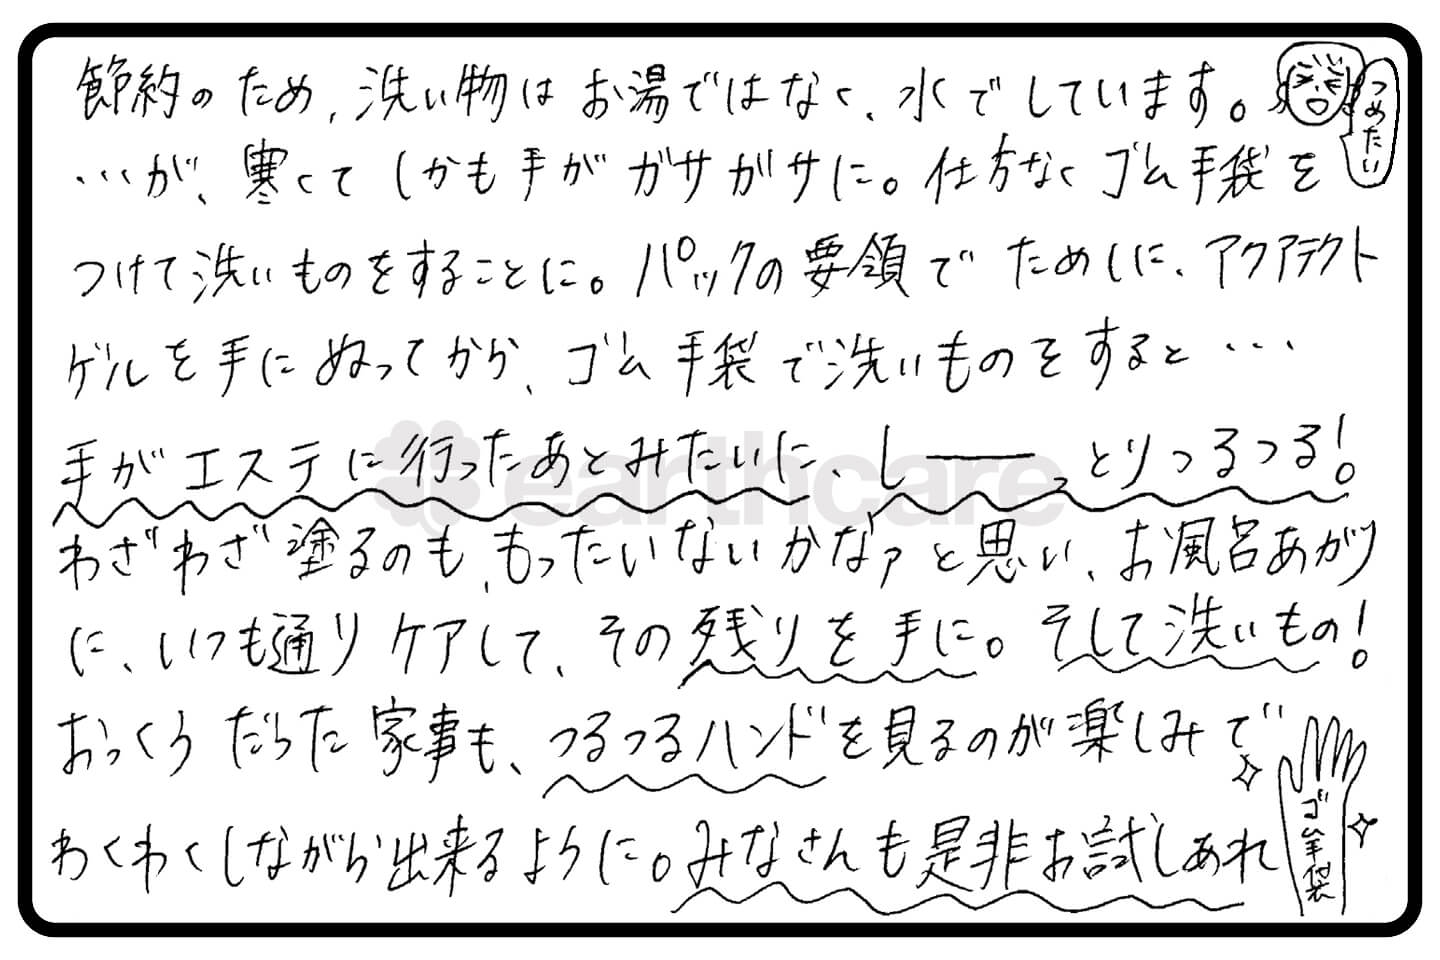 節約のため、洗い物はお湯ではなく、水でしています。
つめたい
…が、寒くてしかも手がガサガサに。仕方なくゴム手袋を
つけて洗いものをすることに。パックの要領でためしに、アクアテクト
ゲルを手にぬってから、ゴム手袋で洗いものをすると…
手がエステに行ったあとみたいに、し──っとりつるつる!
earthcare
わざわざ塗るのも、もったいないかなァと思い、お風呂あがり
に、いつも通りケアして、その残りを手に。そして洗いもの!
おっくうだった家事も、つるつるハンドを見るのが楽しみで
わくわくしながら出来るように。みなさんも是非お試しあれ
ゴム手袋